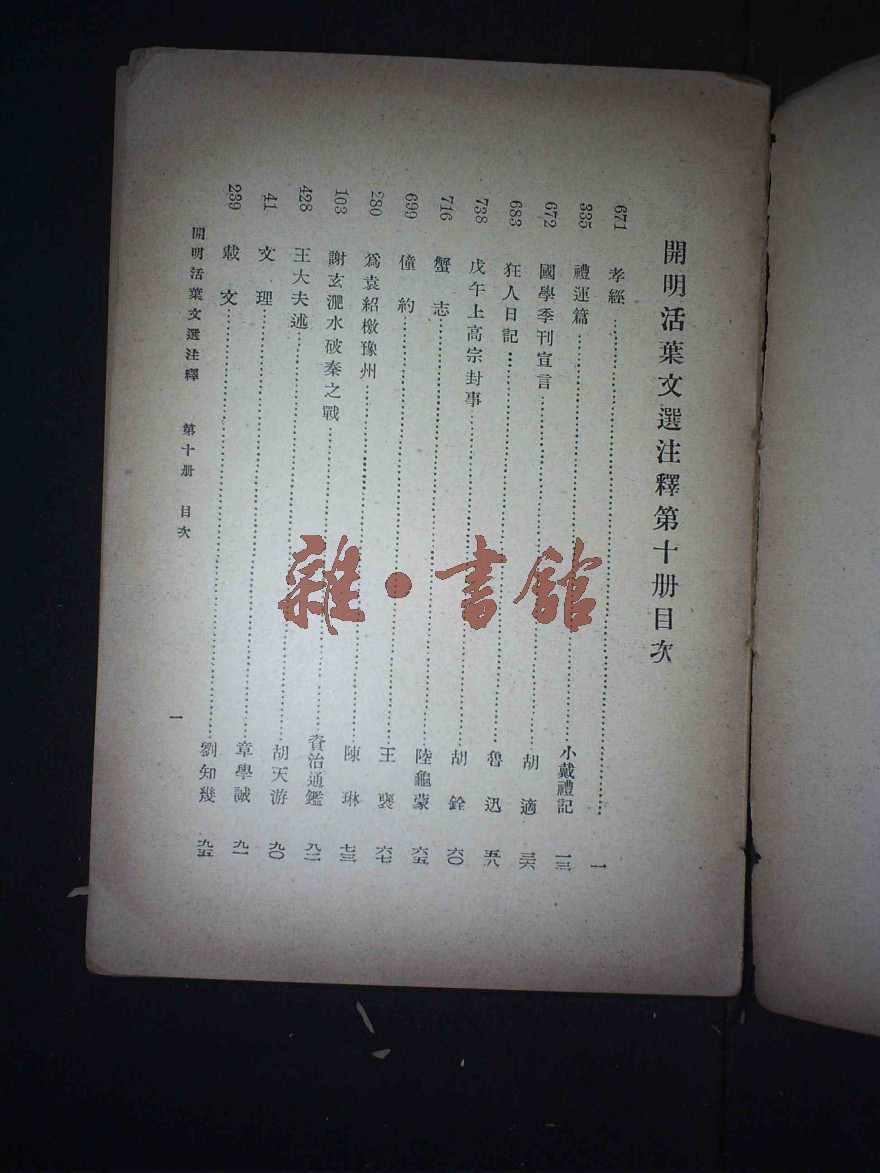 開明活葉文選注釋第十册目次
671 孝經 一
335 禮運篇 小戴禮記 一三
672 國學季刊宣言 胡適 三六
683 狂人日記 魯迅 五八
738 戊午上高宗封事 胡銓 六〇
716 蟹志 陸龜蒙 六五
699 僮約 王褒 六七
280 爲袁紹檄豫州 陳琳 七三
103 謝玄淝水破秦之戰 資治通鑑 八二
428 王大夫述 胡天游 九〇
41 文理 章學誠 九一
239 載文 劉知幾 九五
開明活葉文選注釋 第十册 目次 一
雜·書館